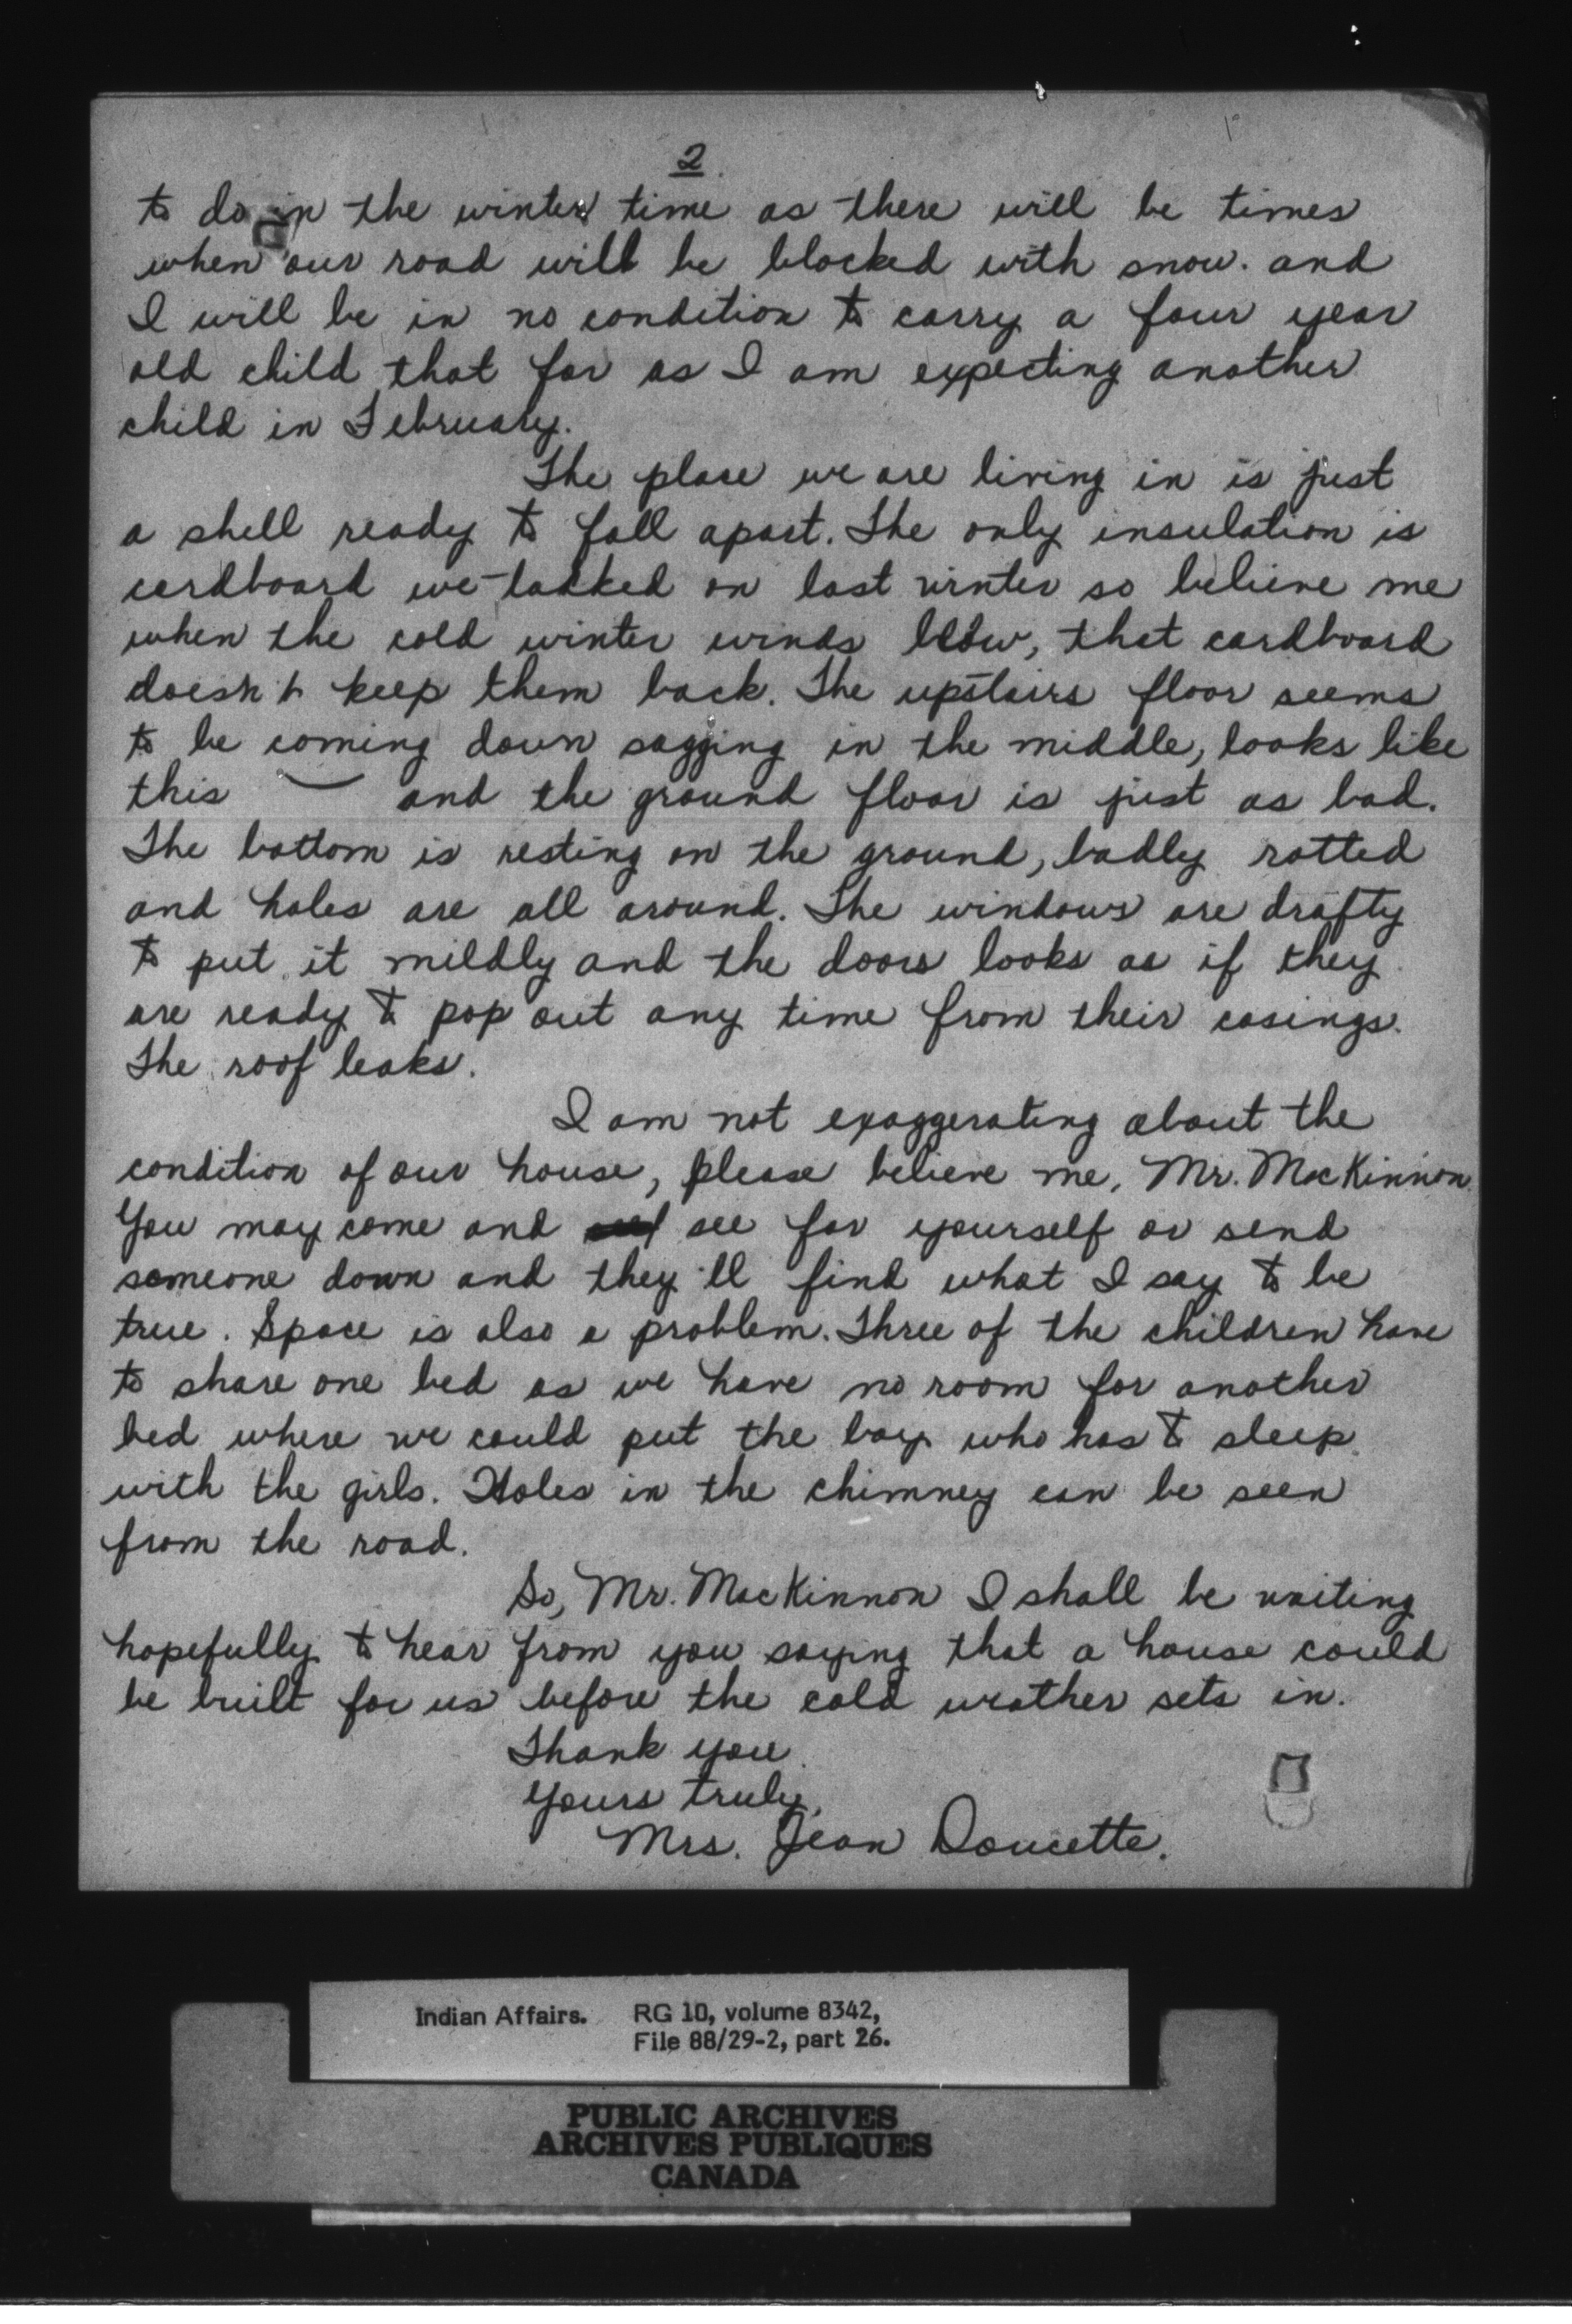 2
to do in the winter time as there will be times
when our road will be blocked with snow. and
I will be in no condition to carry a four year
old child that far as I am expecting another
child in February.
The place we are living in is just
a shell ready to fall apart. The only insulation is
cardboard we tacked on last winter so believe me
when the cold winter winds blow, that cardboard
doesn't keep them back. The upstairs floor seems
to be coming down sagging in the middle, looks like
this and the ground floor is just as bad.
The bottom is resting on the ground, badly rotted
and holes are all around. The windows are drafty
to put it mildly and the doors looks as if they
are ready to pop out any time from their casings.
The roof leaks.
I am not exaggerating about the
condition of our house, please believe me, Mr. MacKinnon.
You may come and see for yourself or send
someone down and they'll find what I say to be
true. Space is also a problem. Three of the children have
to share one bed as we have no room for another
bed where we could put the boy who has to sleep
with the girls. Holes in the chimney can be seen
from the road.
So, Mr. MacKinnon I shall be waiting
hopefully to hear from you saying that a house could
be built for us before the cold weather sets in.
Thank you.
Yours truly,
Mrs. Jean Doucette.
Indian Affairs. RG 10, volume 8342,
File 88/29-2, part 26.
PUBLIC ARCHIVES
ARCHIVES PUBLIQUES
CANADA